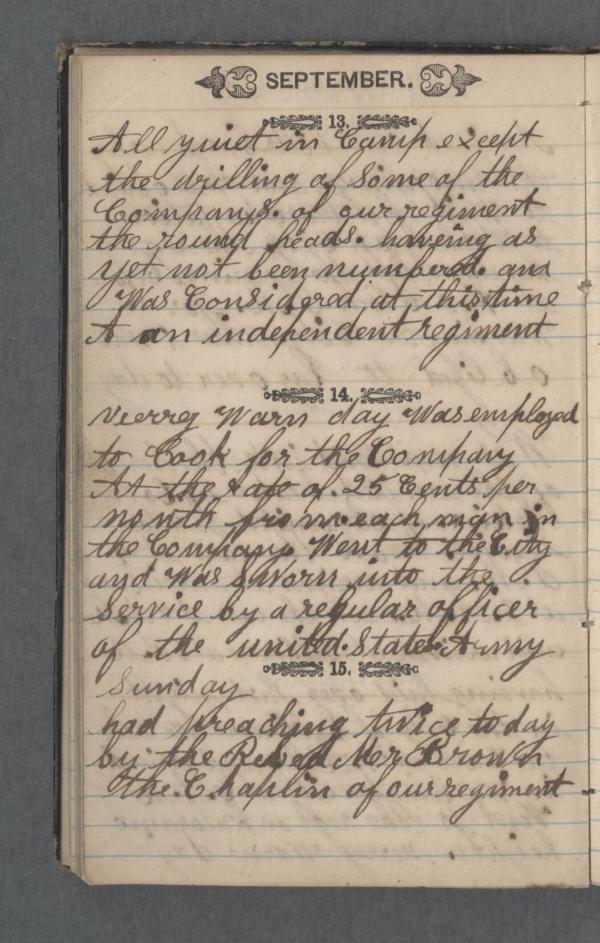 SEPTEMBER.
13.
All quiet in Camp except
the drilling of Some of the
Companys. of our regiment
the round heads. haveing as
yet not been numbered. and
Was Considered at this time
A an independent regiment
14.
verrey Warn day Was employed
to Cook for the Company
At the rate of. 25 Cents per
month from each man in
the Company. Went to the City
and Was Sworn into the
Service by a regular officer
of the united. States. Army
15.
Sunday
had preaching twice to day
by the Reved Mer Brown
the. Chaplin of our regiment